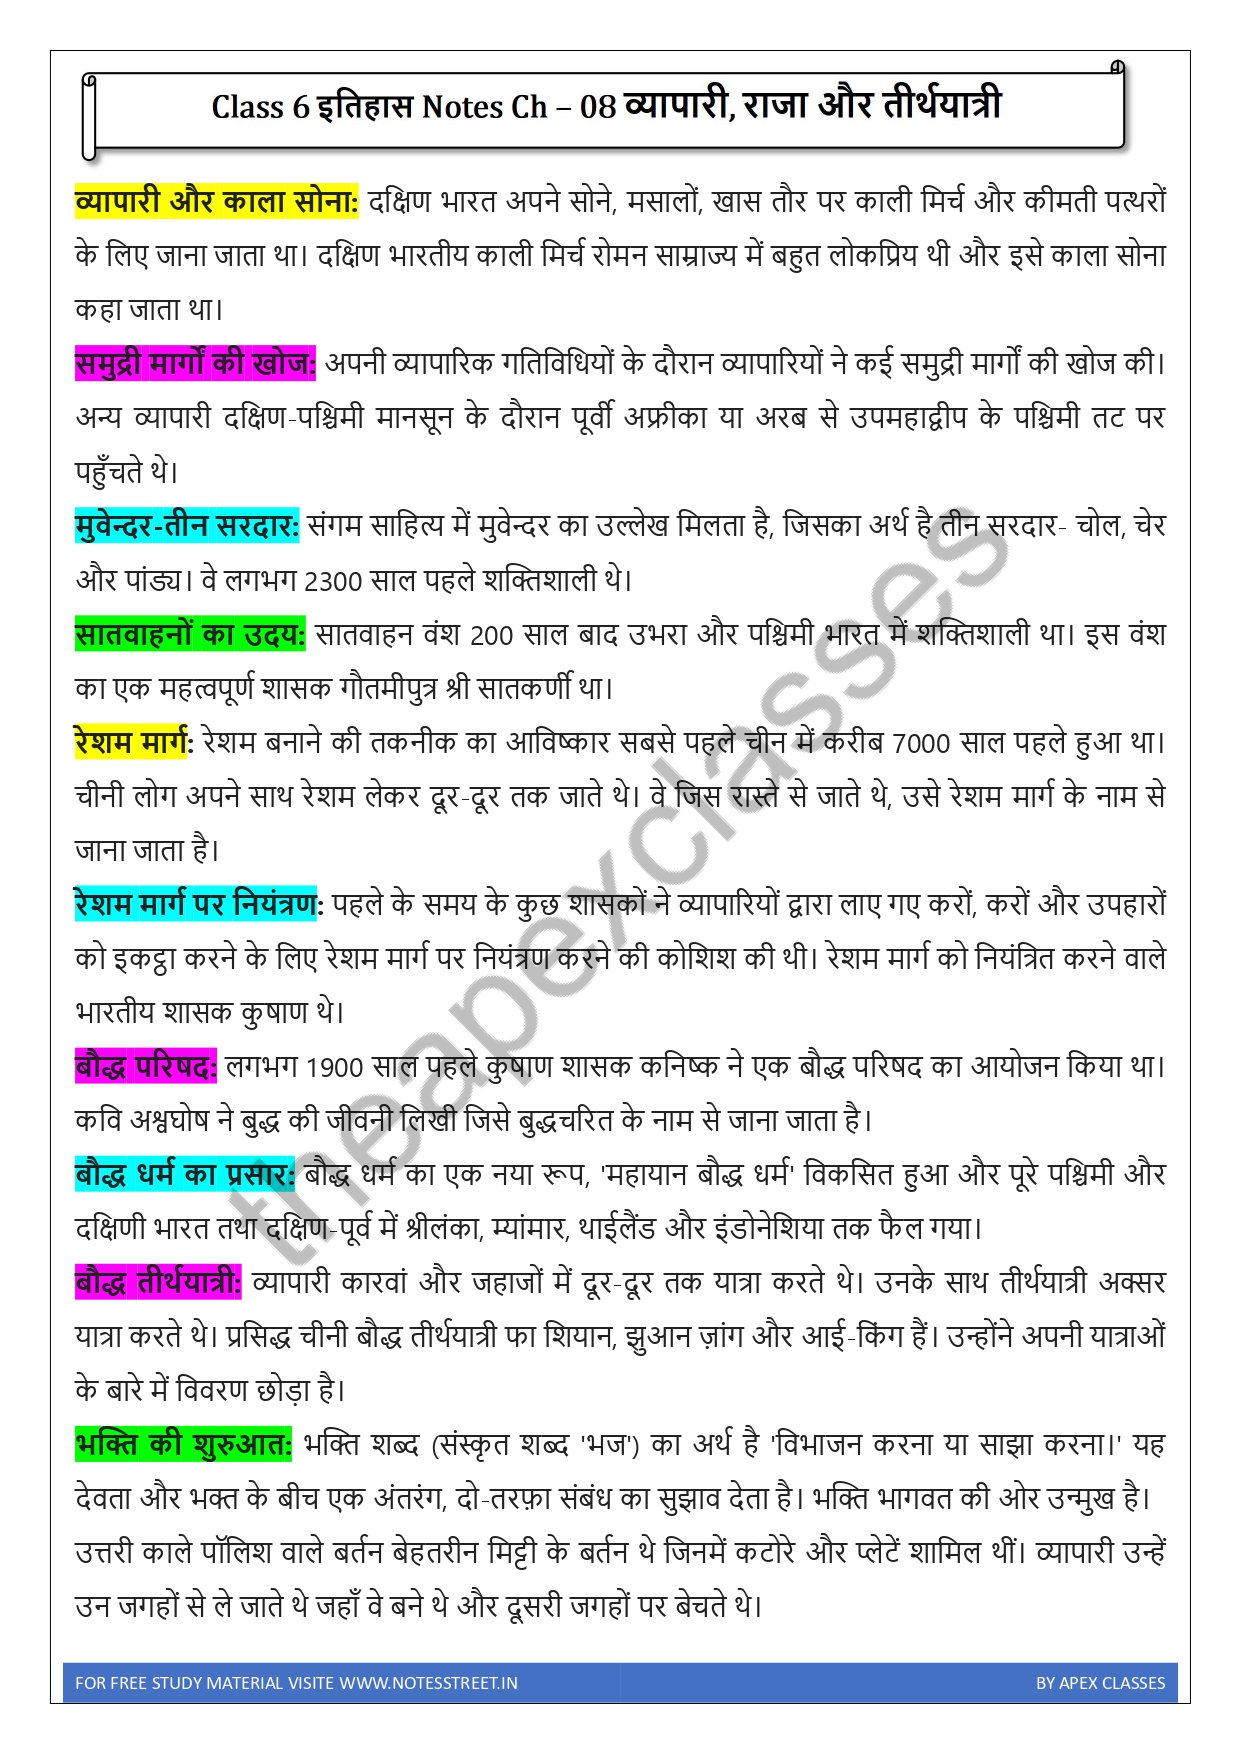 Class 6 इतिहास Notes Ch – 08 व्यापारी, राजा और तीर्थयात्री
व्यापारी और काला सोना: दक्षिण भारत अपने सोने, मसालों, खास तौर पर काली मिर्च और कीमती पत्थरों
के लिए जाना जाता था। दक्षिण भारतीय काली मिर्च रोमन साम्राज्य में बहुत लोकप्रिय थी और इसे काला सोना
कहा जाता था।
समुद्री मार्गों की खोज: अपनी व्यापारिक गतिविधियों के दौरान व्यापारियों ने कई समुद्री मार्गों की खोज की।
अन्य व्यापारी दक्षिण-पश्चिमी मानसून के दौरान पूर्वी अफ्रीका या अरब से उपमहाद्वीप के पश्चिमी तट पर
पहुँचते थे।
मुवेन्दर-तीन सरदार: संगम साहित्य में मुवेन्दर का उल्लेख मिलता है, जिसका अर्थ है तीन सरदार- चोल, चेर
और पांड्य। वे लगभग 2300 साल पहले शक्तिशाली थे।
सातवाहनों का उदय: सातवाहन वंश 200 साल बाद उभरा और पश्चिमी भारत में शक्तिशाली था। इस वंश
का एक महत्वपूर्ण शासक गौतमीपुत्र श्री सातकर्णी था।
रेशम मार्ग: रेशम बनाने की तकनीक का आविष्कार सबसे पहले चीन में करीब 7000 साल पहले हुआ था।
चीनी लोग अपने साथ रेशम लेकर दूर-दूर तक जाते थे। वे जिस रास्ते से जाते थे, उसे रेशम मार्ग के नाम से
जाना जाता है।
रेशम मार्ग पर नियंत्रण: पहले के समय के कुछ शासकों ने व्यापारियों द्वारा लाए गए करों, करों और उपहारों
को इकट्ठा करने के लिए रेशम मार्ग पर नियंत्रण करने की कोशिश की थी। रेशम मार्ग को नियंत्रित करने वाले
भारतीय शासक कुषाण थे।
बौद्ध परिषद: लगभग 1900 साल पहले कुषाण शासक कनिष्क ने एक बौद्ध परिषद का आयोजन किया था।
कवि अश्वघोष ने बुद्ध की जीवनी लिखी जिसे बुद्धचरित के नाम से जाना जाता है।
बौद्ध धर्म का प्रसार: बौद्ध धर्म का एक नया रूप, 'महायान बौद्ध धर्म' विकसित हुआ और पूरे पश्चिमी और
दक्षिणी भारत तथा दक्षिण-पूर्व में श्रीलंका, म्यांमार, थाईलैंड और इंडोनेशिया तक फैल गया।
बौद्ध तीर्थयात्री: व्यापारी कारवां और जहाजों में दूर-दूर तक यात्रा करते थे। उनके साथ तीर्थयात्री अक्सर
यात्रा करते थे। प्रसिद्ध चीनी बौद्ध तीर्थयात्री फा शियान, झुआन ज़ांग और आई-किंग हैं। उन्होंने अपनी यात्राओं
के बारे में विवरण छोड़ा है।
भक्ति की शुरुआत: भक्ति शब्द (संस्कृत शब्द 'भज') का अर्थ है 'विभाजन करना या साझा करना।' यह
देवता और भक्त के बीच एक अंतरंग, दो-तरफ़ा संबंध का सुझाव देता है। भक्ति भागवत की ओर उन्मुख है।
उत्तरी काले पॉलिश वाले बर्तन बेहतरीन मिट्टी के बर्तन थे जिनमें कटोरे और प्लेटें शामिल थीं। व्यापारी उन्हें
उन जगहों से ले जाते थे जहाँ वे बने थे और दूसरी जगहों पर बेचते थे।
theapexclasses
FOR FREE STUDY MATERIAL VISITE WWW.NOTESSTREET.IN BY APEX CLASSES